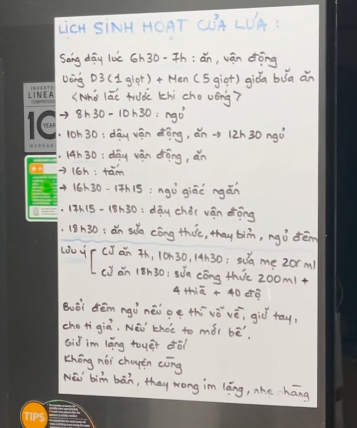 LỊCH SINH HOẠT CỦA LỨA :
Sáng dậy lúc 6h30 - 7h : ăn, vận động
Uống D3 (1 giọt) + Men (5 giọt) giữa bữa ăn
<Nhớ lắc trước khi cho uống>
→ 8h30 - 10h30 : ngủ
• 10h30 : dậy vận động, ăn → 12h30 ngủ
• 14h30 : dậy vận động, ăn
→ 16h : tắm
→ 16h30 - 17h15 : ngủ giấc ngắn
• 17h15 - 18h30 : dậy chơi vận động
• 18h30 : ăn sữa công thức, thay bỉm, ngủ đêm
Lưu ý [ Cữ ăn 7h, 10h30, 14h30 : sữa mẹ 200ml
Cữ ăn 18h30 : sữa công thức 200ml +
4 thìa + 40 độ
Buổi đêm ngủ nếu ọ ẹ thì vỗ về, giữ tay,
cho ti giả. Nếu khóc to mới bế.
Giữ im lặng tuyệt đối
Không nói chuyện cùng
Nếu bỉm bẩn, thay trong im lặng, nhẹ nhàng
INVERTER
LINEA
COMPRESSOR
10
YEAR
TIPS